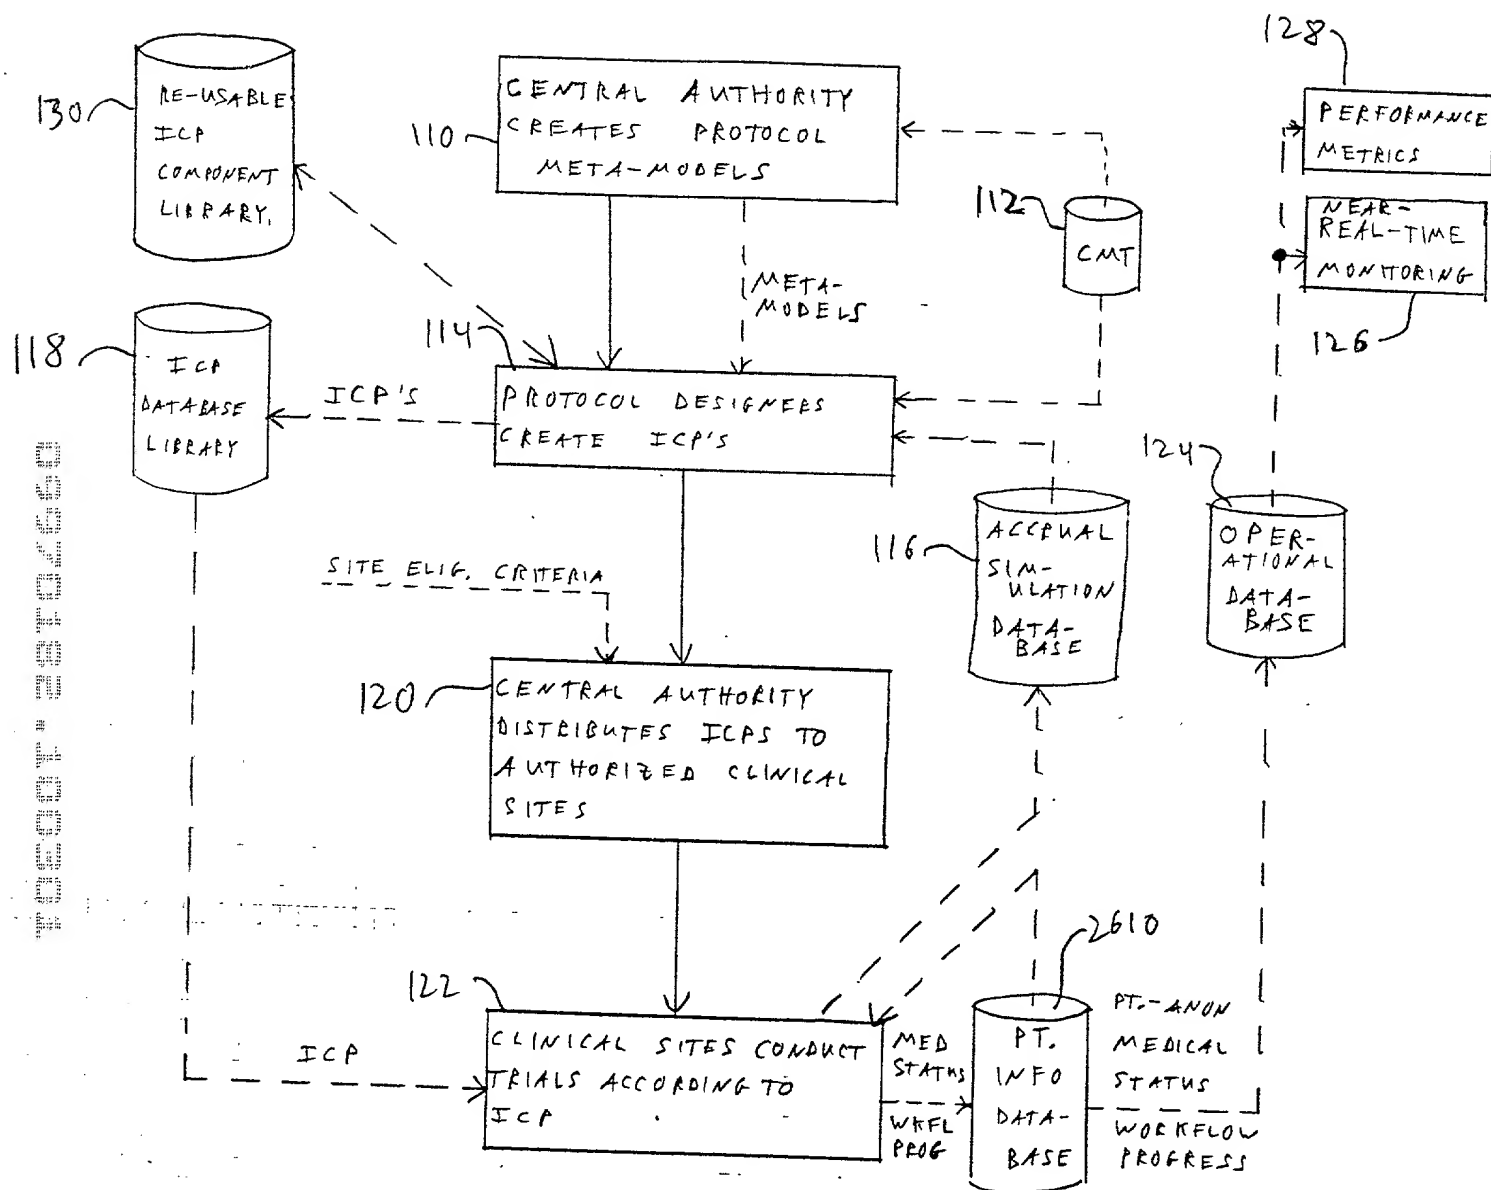 128
RE-USABLE
ICP
COMPONENT
LIBRARY.
130
CENTRAL AUTHORITY
CREATES PROTOCOL
META-MODELS
110
PERFORMANCE
METRICS
112
CMT
NEAR-
REAL-TIME
MONITORING
126
META-
MODELS
118
ICP
DATABASE
LIBRARY
ICP'S
114
PROTOCOL DESIGNERS
CREATE ICP'S
124
116
ACCRUAL
SIM-
ULATION
DATA-
BASE
OPER-
ATIONAL
DATA-
BASE
SITE ELIG. CRITERIA
120
CENTRAL AUTHORITY
DISTRIBUTES ICPS TO
AUTHORIZED CLINICAL
SITES
09970182.100301
2610
122
CLINICAL SITES CONDUCT
TRIALS ACCORDING TO
ICP
ICP
MED
STATUS
WKFL
PROG
PT.
INFO
DATA-
BASE
PT.-ANON
MEDICAL
STATUS
WORKFLOW
PROGRESS